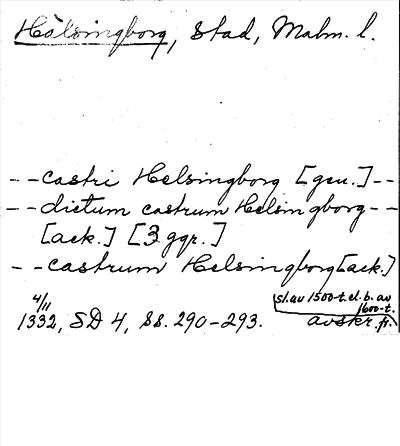 Hälsingborg, Stad, Malm. l.
--castri Helsingborg [gen.]--
--dictum castrum Helsingborg--
[ack.] [3 ggr.]
--castrum Helsingborg [ack.]
4/11 1332, SD 4, ss. 290-293.
sl. av 1500-t. el. b. av
1600-t.
avskr. fr.